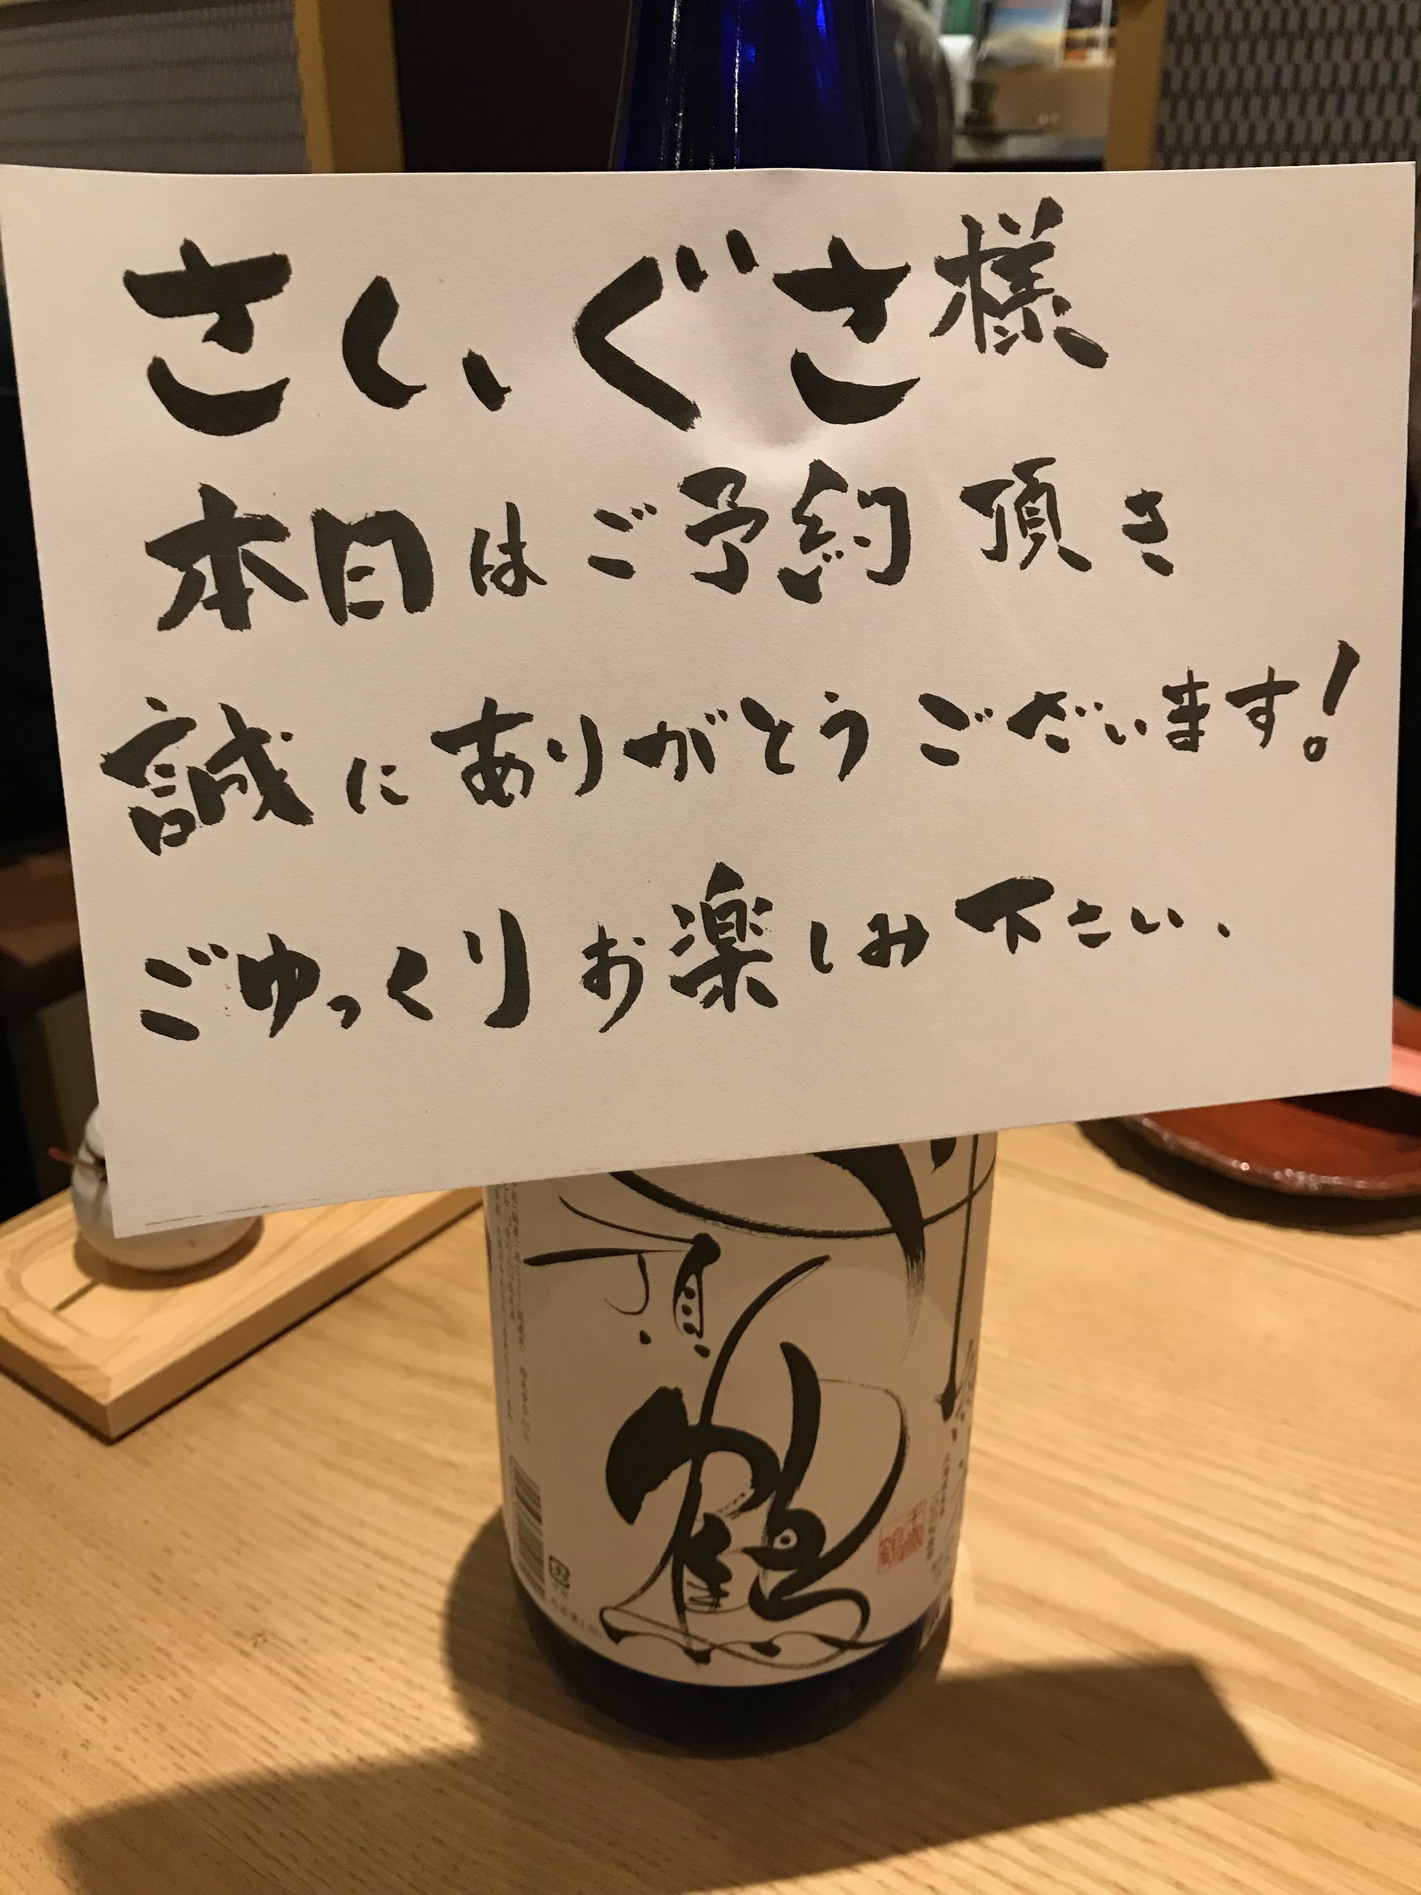 さいぐさ様
本日はご予約頂き
誠にありがとうございます!
ごゆっくりお楽しみ下さい、
頂
鶴